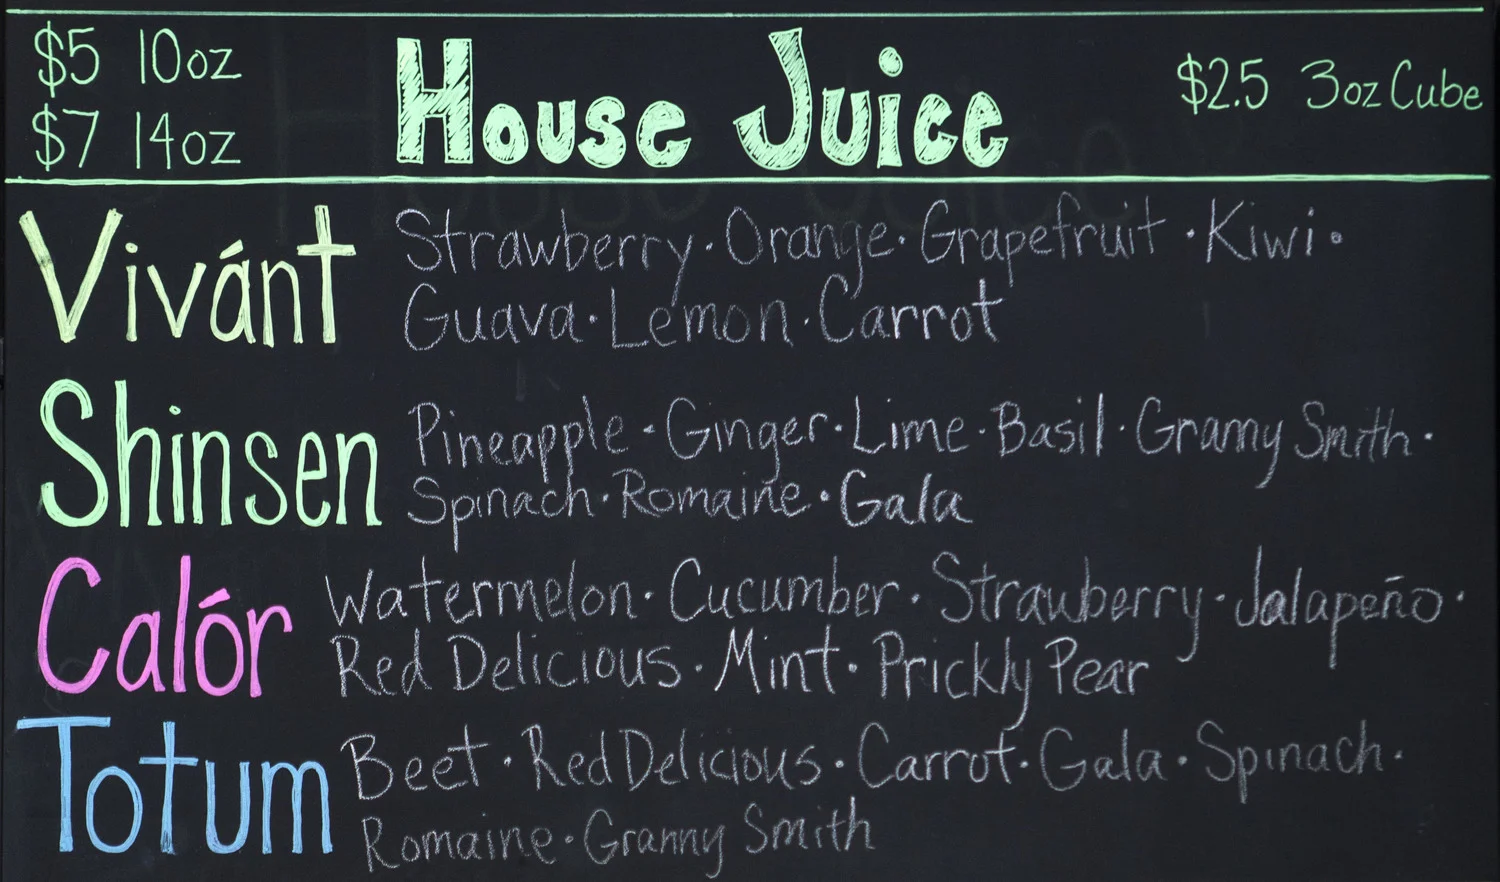 $5 10oz
$7 14oz
House Juice
$2.5 3oz Cube
Vivánt
Strawberry · Orange · Grapefruit · Kiwi ·
Guava · Lemon · Carrot
Shinsen
Pineapple · Ginger · Lime · Basil · Granny Smith ·
Spinach · Romaine · Gala
Calór
Watermelon · Cucumber · Strawberry · Jalapeño ·
Red Delicious · Mint · Prickly Pear
Totum
Beet · Red Delicious · Carrot · Gala · Spinach ·
Romaine · Granny Smith